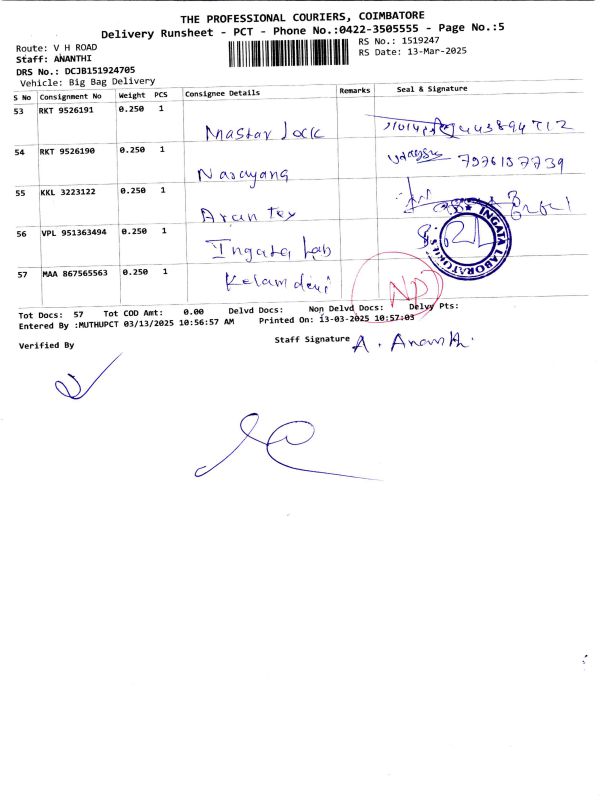 THE PROFESSIONAL COURIERS, COIMBATORE
Delivery Runsheet - PCT - Phone No.:0422-3505555 - Page No.:5
Route: V H ROAD
RS No.: 1519247
Staff: ANANTHI
RS Date: 13-Mar-2025
DRS No.: DCJB151924705
Vehicle: Big Bag Delivery
S No Consignment No Weight PCS Consignee Details Remarks Seal & Signature
53 RKT 9526191 0.250 1
Mastar Lock
54 RKT 9526190 0.250 1
Narayana
55 KKL 3223122 0.250 1
Arun Tex
56 VPL 951363494 0.250 1
Ingata Lab
INGATA LABORATORIE
57 MAA 867565563 0.250 1
NP
Tot Docs: 57 Tot COD Amt: 0.00 Delvd Docs: Non Delvd Docs: Delvy Pts:
Entered By :MUTHUPCT 03/13/2025 10:56:57 AM Printed On: 13-03-2025 10:57:03
Verified By
Staff Signature A. Ananthi.